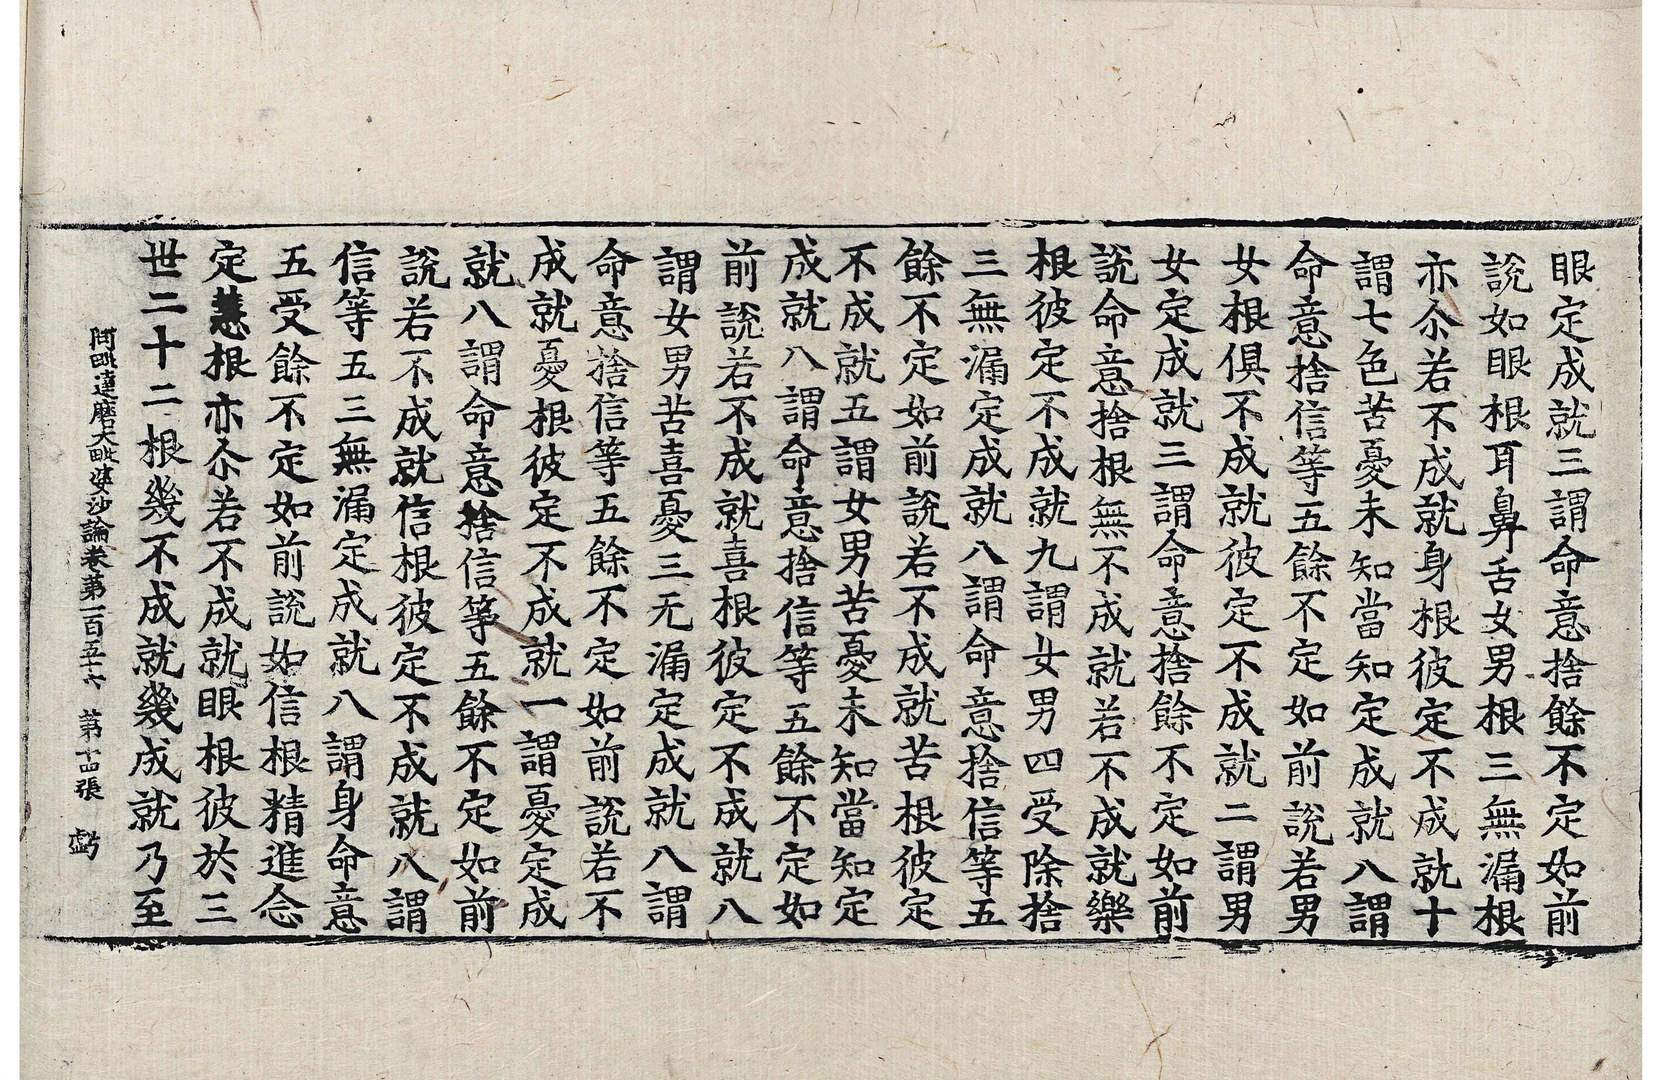 眼定成就三謂命意捨餘不定如前
說如眼根耳鼻舌女男根三無漏根
亦尒若不成就身根彼定不成就十
謂七色苦憂未知當知定成就八謂
命意捨信等五餘不定如前說若男
女根俱不成就彼定不成就二謂男
女定成就三謂命意捨餘不定如前
說命意捨根無不成就若不成就樂
根彼定不成就九謂女男四受除捨
三無漏定成就八謂命意捨信等五
餘不定如前說若不成就苦根彼定
不成就五謂女男苦憂未知當知定
成就八謂命意捨信等五餘不定如
前說若不成就喜根彼定不成就八
謂女男苦喜憂三无漏定成就八謂
命意捨信等五餘不定如前說若不
成就憂根彼定不成就一謂憂定成
就八謂命意捨信等五餘不定如前
說若不成就信根彼定不成就八謂
信等五三無漏定成就八謂身命意
五受餘不定如前說如信根精進念
定慧根亦尒若不成就眼根彼於三
世二十二根幾不成就幾成就乃至
阿毗達磨大毗婆沙論卷第一百五十六 第十四張 虧